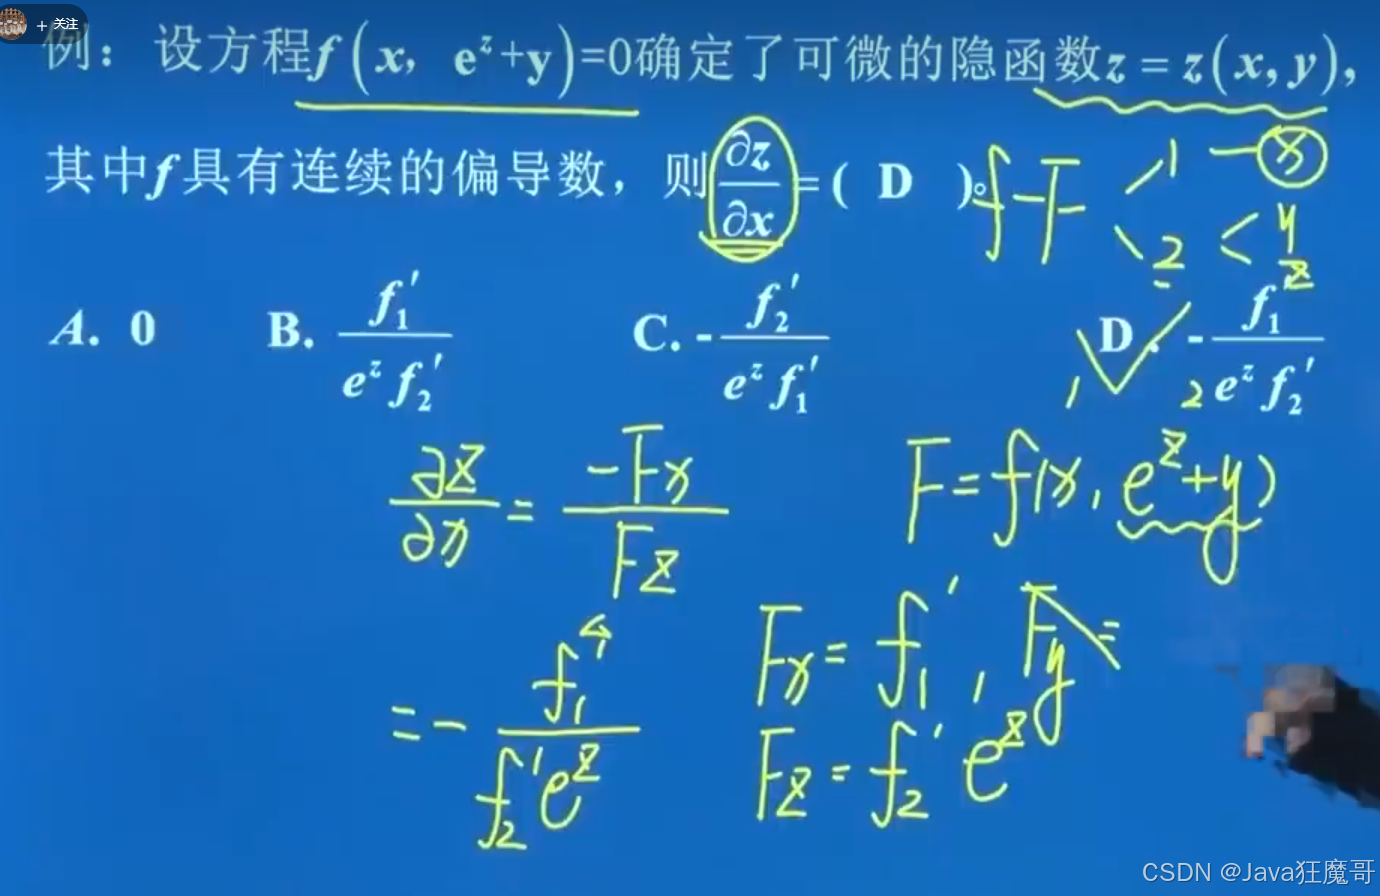 + 关注
例：设方程f(x, e^z+y)=0确定了可微的隐函数z = z(x, y),
其中f具有连续的偏导数，则∂z/∂x=( D )。
f-F 1 - x
2 < y z
A. 0 B. f₁′/(e^z f₂′) C. -f₂′/(e^z f₁′) D. -f₁′/(e^z f₂′)
1 2
∂z/∂x = -Fx/Fz F=f(x, e^z+y)
= - f₁′/(f₂′e^z) Fx=f₁′, Fy=
Fz=f₂′e^z
CSDN @Java狂魔哥